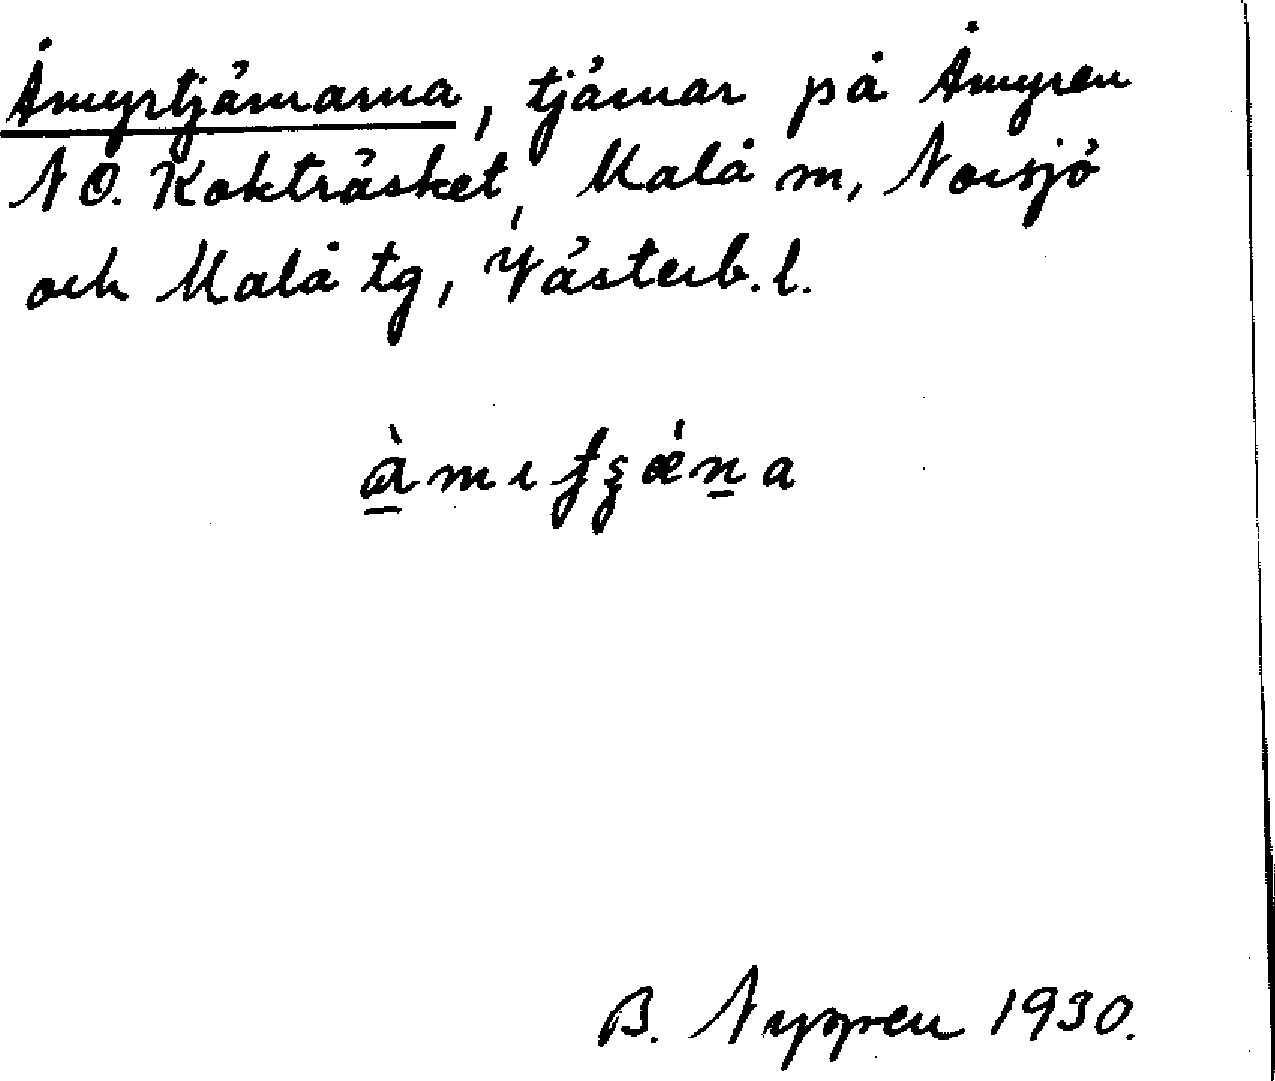 Åmyrtjärnarna, tjärnar på Åmyren
N O. Kokträsket, Malå m, Norsjö
och Malå tg, Västerb. l.
B. Nygren 1930.